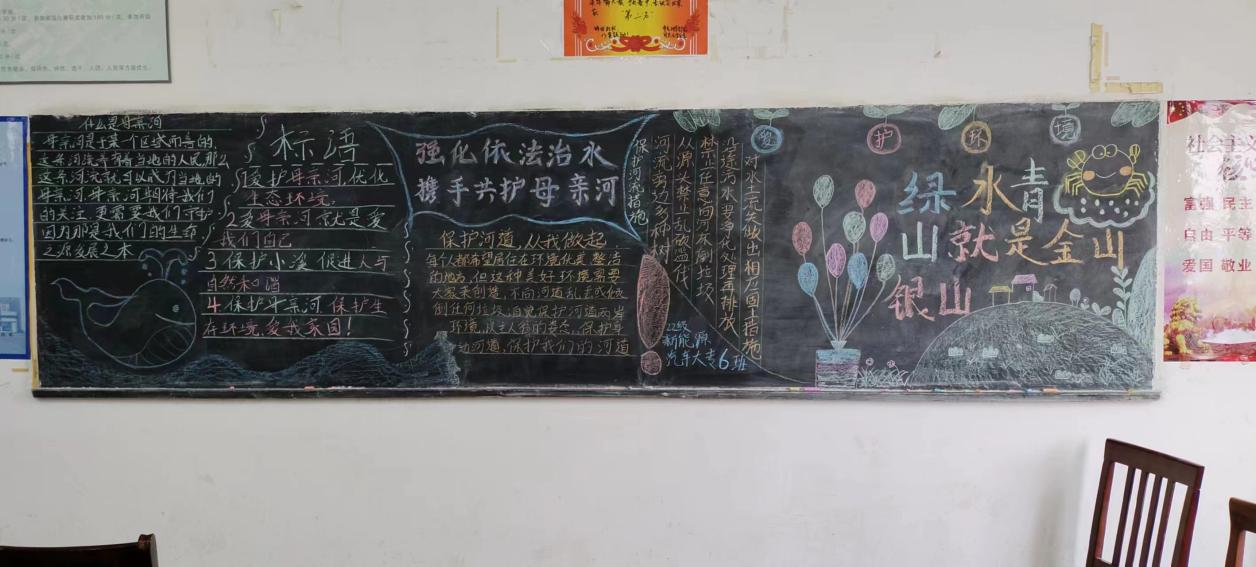 什么是母亲河
母亲河是于某个区域而言的,
这条河流养育着当地的人民,那么
这条河流就可以成为当地的
母亲河.母亲河期待我们
的关注,更需要我们守护
因为那是我们的生命
之源发展之本
标语
1爱护母亲河,优化
生态环境.
2爱母亲河就是爱
我们自己
3保护小溪 促进人与
自然和谐
4保护母亲河 保护生
态环境,爱我家园!
强化依法治水
携手共护母亲河
保护河道,从我做起
每个人都希望居住在环境优美整洁
的地方,但这种美好环境需要
大家来创造,不向河道乱丢或倾
倒任何垃圾,自觉保护河道两岸
环境,以主人翁的姿态,保护
河道,保护我们的河道
保护河流措施
河流旁边多种树
从源头禁止乱砍盗伐
禁止任意向河流倒垃圾
沿途污水要净化处理再排放
对水土流失做出相应固土措施
22级
新能源
汽车大专6班
爱护环境
绿水青
山就是金山
银山
第二名
富强 民主
自由 平等
爱国 敬业